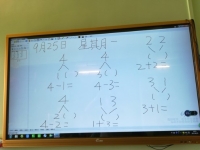 9月25日 星其月一
4 4 2 2
( ) 3 ( ) ( )
4-1= 4-3= 2+2=
4 1 3 3 1
2 ( ) ( ) ( )
4-2= 1+3= 3+1=